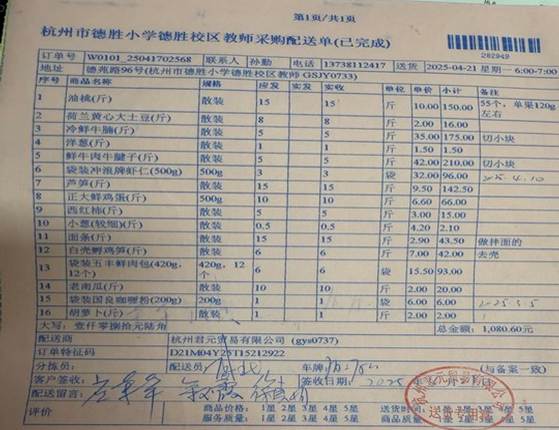 第1页/共1页
杭州市德胜小学德胜校区教师采购配送单(已完成)
282949
订单号 W0101_25041702568 联系人 孙勤 电话 13738112417 送货 2025-04-21 星期一 6:00-7:00
地址 德苑路96号(杭州市德胜小学德胜校区教师 GSJY0733)
序号 商品名称 规格 应发 实发 实收 单位 单价 小计 备注
1 油桃(斤) 散装 15 15 斤 10.00 150.00 55个,单果120g左右
2 荷兰黄心大土豆(斤) 散装 8 8 斤 2.00 16.00
3 冷鲜牛腩(斤) 散装 5 5 斤 35.00 175.00 切小块
4 洋葱(斤) 散装 1 1 斤 1.50 1.50
5 鲜牛肉牛腱子(斤) 散装 5 5 斤 42.00 210.00 切小块
6 袋装冲浪牌虾仁(500g) 500g 3 3 袋 32.00 96.00 25.4.10
7 芦笋(斤) 散装 15 15 斤 9.50 142.50
8 正大鲜鸡蛋(500g) 散装 10 10 斤 6.60 66.00
9 西红柿(斤) 散装 5 5 斤 3.00 15.00
10 小葱(较细)(斤) 散装 0.5 0.5 斤 4.20 2.10
11 面条(斤) 散装 15 15 斤 2.90 43.50 做拌面的
12 白壳孵鸡笋(斤) 散装 6 6 斤 7.00 42.00 去壳
13 袋装五丰鲜肉包(420g,12个) 420g, 12个 6 6 袋 15.50 93.00
14 老南瓜(斤) 散装 10 10 斤 2.00 20.00
15 袋装国良咖喱粉(200g) 200g 1 1 袋 6.00 6.00
16 胡萝卜(斤) 散装 1 1 斤 2.00 2.00
大写: 壹仟零捌拾元陆角 总金额: 1,080.60元
配送商 杭州君元贸易有限公司 (gys0737)
订单特征码 D21M04Y25T15212922
分拣员: 配送员: 车牌: (与备案一致)
客户签收: 签收日期: 2025
配送留言:
评价 商品价格: 1星 2星 3星 4星 5星 送货时间: 1星 2星 3星 4星 5星
服务质量: 1星 2星 3星 4星 5星
送货专用章